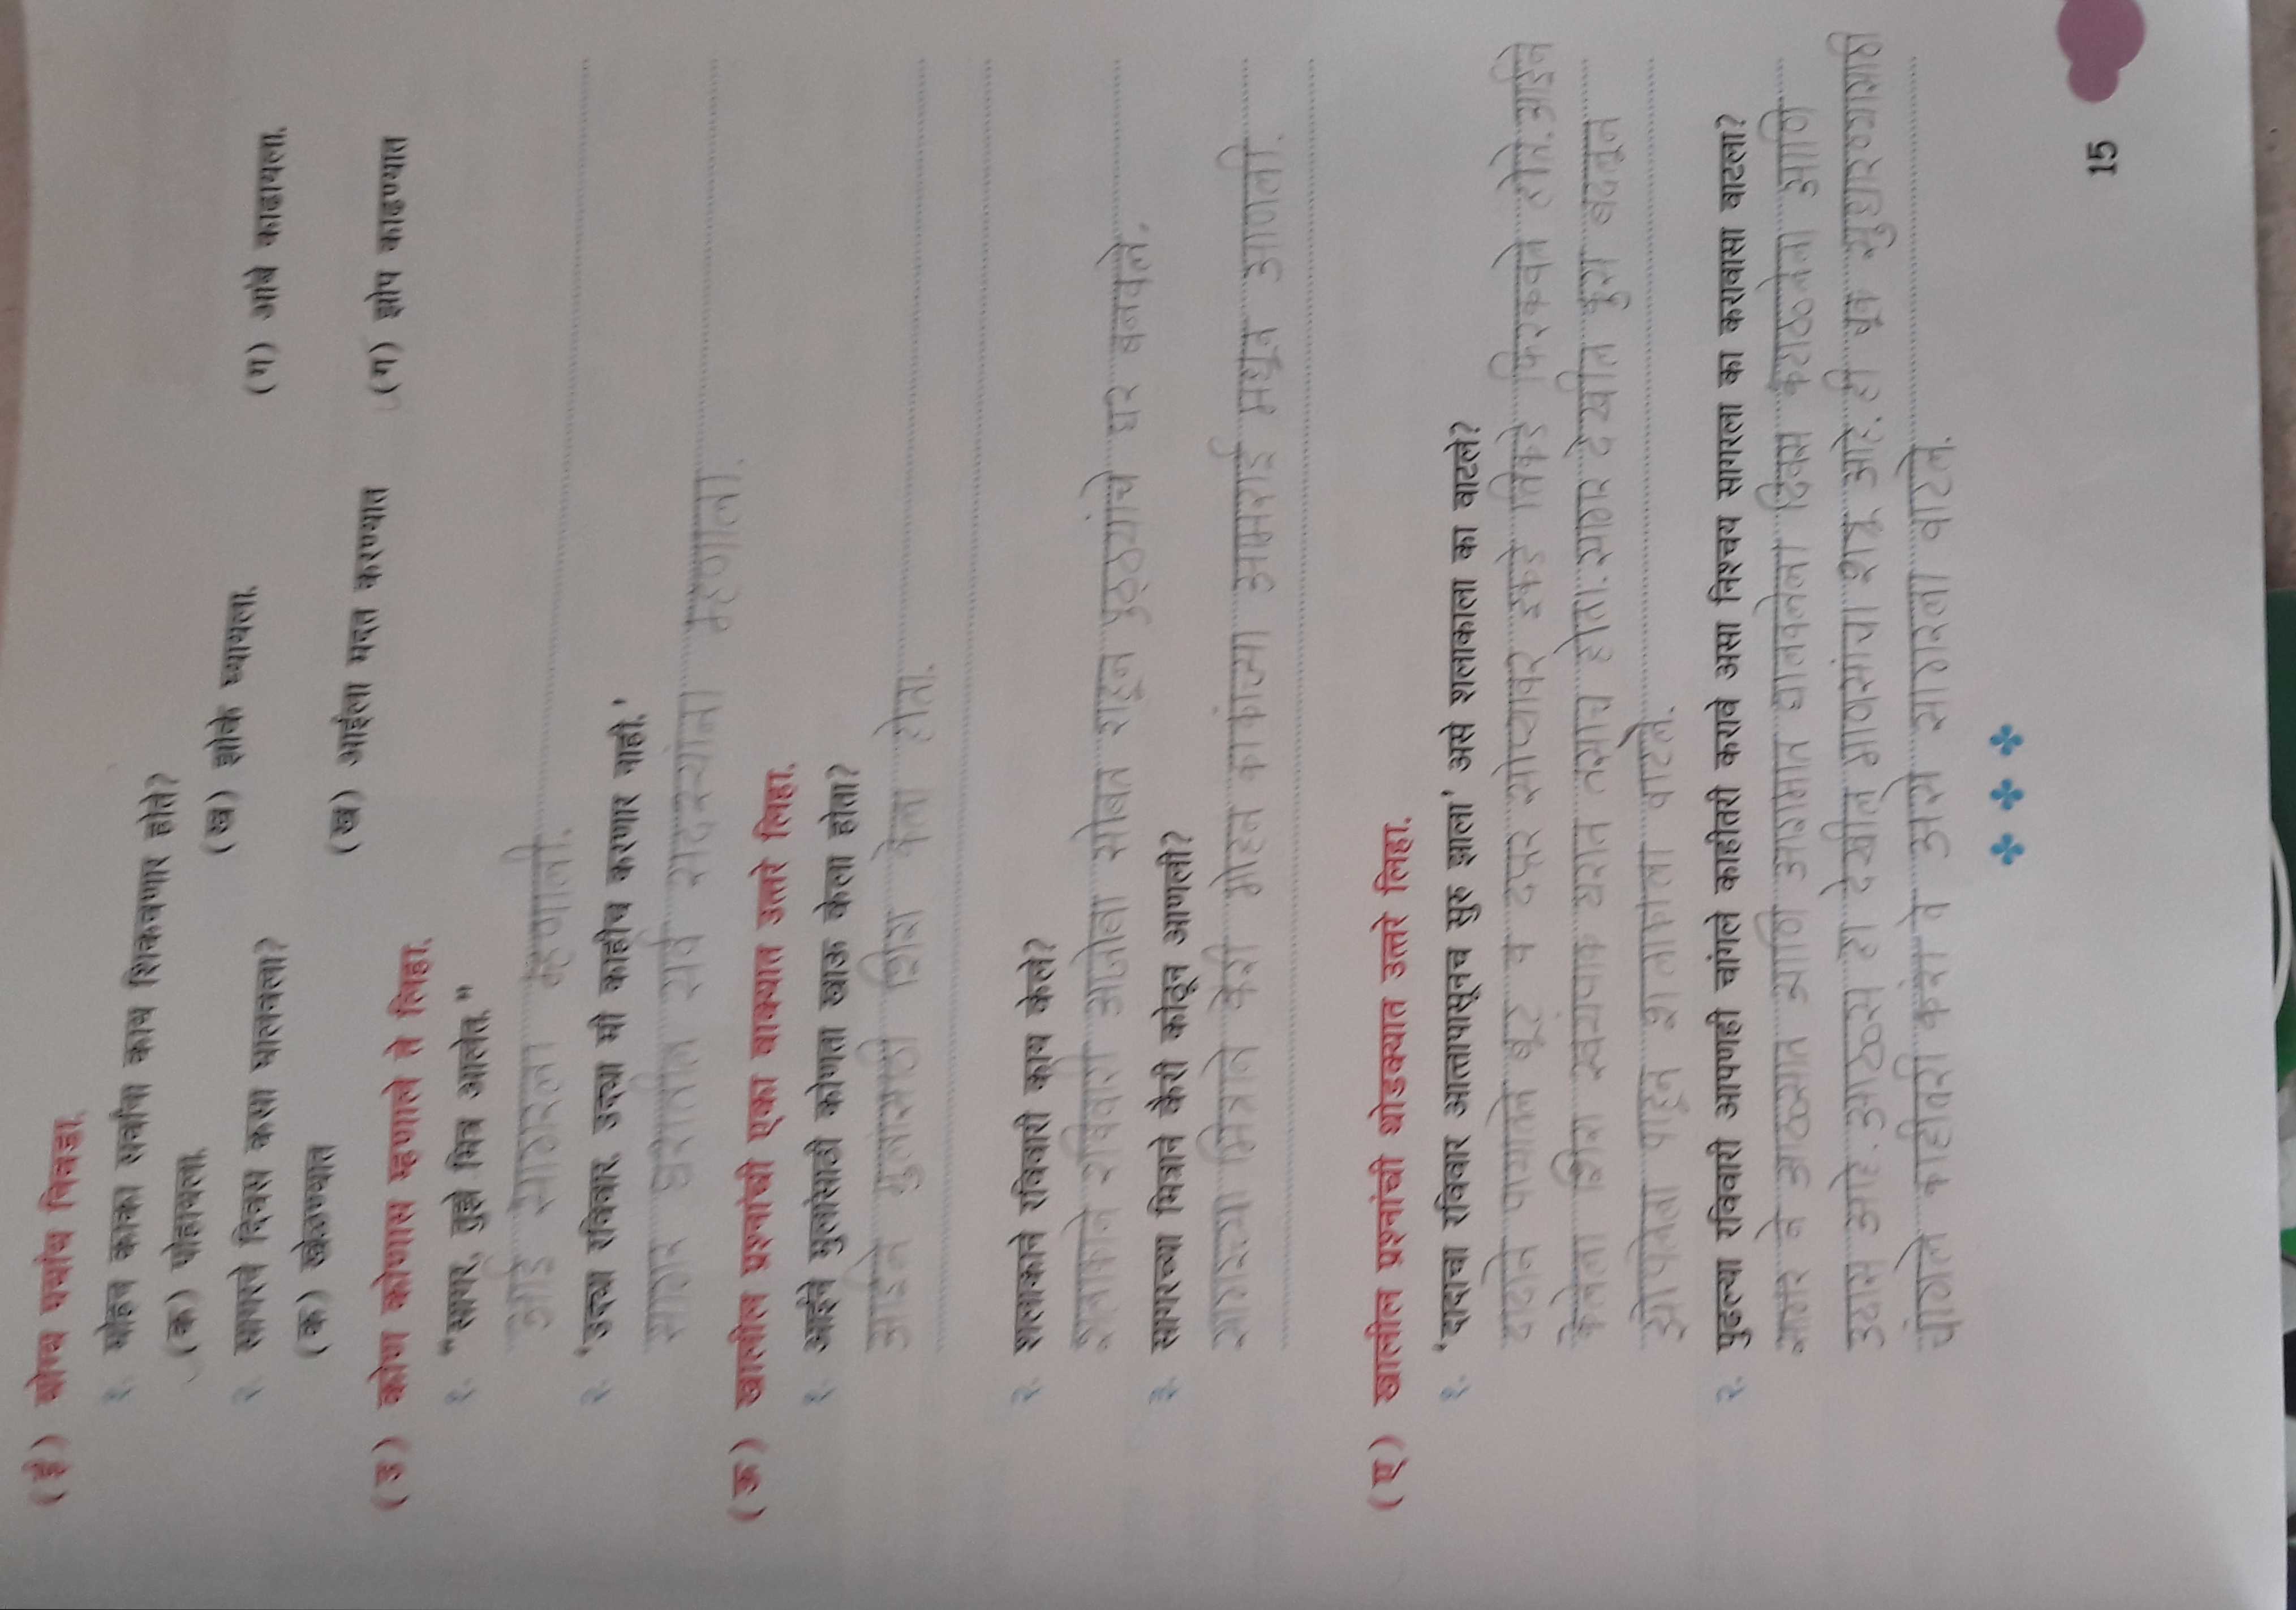 (ई) योग्य पर्याय निवडा.
१. मोहन काका सर्वांना काय शिकवणार होते?
(क) पोहायला. (ख) झोके घ्यायला. (ग) आंबे काढायला.
२. सागरने दिवस कसा घालवला?
(क) खेळण्यात (ख) आईला मदत करण्यात (ग) झोप काढण्यात
(उ) कोण कोणास म्हणाले ते लिहा.
१. "सागर, तुझे मित्र आलेत."
आई सागरला म्हणाली.
२. 'उद्या रविवार. उद्या मी काहीच करणार नाही.'
सागर घरातील सर्व सदस्यांना म्हणाला.
(ऊ) खालील प्रश्नांची एका वाक्यात उत्तरे लिहा.
१. आईने मुलांसाठी कोणता खाऊ केला होता?
आईने मुलांसाठी शिरा केला होता.
२. शलाकाने रविवारी काय केले?
शलाकाने रविवारी आजोबा सोबत राहून पुठ्ठ्याचे घर बनवले.
३. सागरच्या मित्राने कैरी कोठून आणली?
सागरच्या मित्राने कैरी मोहन काकांच्या आमराई मधून आणली.
(ए) खालील प्रश्नांची थोडक्यात उत्तरे लिहा.
१. 'पप्पाचा रविवार आत्तापासूनच सुरू झाला' असे शलाकाला का वाटले?
पप्पाने बूट व दफ्तर सोप्यावर इकडे तिकडे फिरकवले होते. आईने
केलेला शिरा स्वयंपाक घरात तसाच होता. सागर टेबलीत हुरा बघतच
झोपलेला पाहून शलाकाला वाटले.
२. पुढल्या रविवारी आपणही चांगले काहीतरी करावे असा निश्चय सागरला का करावासा वाटला?
सागर ने आळसात आणि आरामात घालवलेला दिवस कंटाळलेला आणि
उदास आहे. आळस हा देखील माणसांचा शत्रू आहे. ही चूक सुधारण्यासाठी
चांगले काहीतरी करावे असे सागरला वाटले.
15